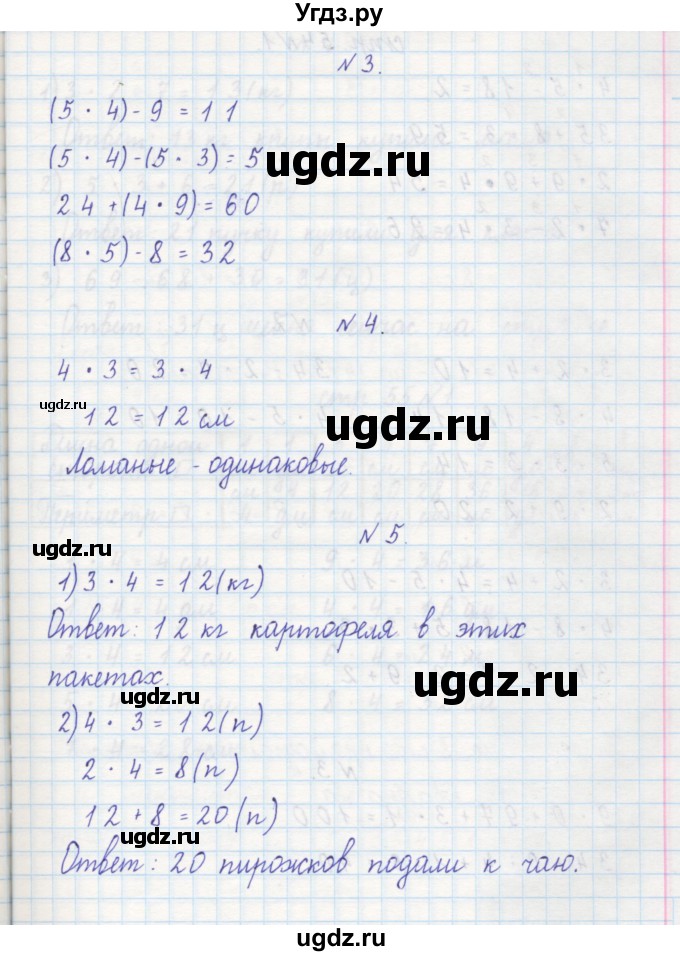 Угдз.ру
N 3.
(5 · 4) - 9 = 11
(5 · 4) - (5 · 3) = 5
ugdz.ru
24 + (4 · 9) = 60
(8 · 5) - 8 = 32
N 4.
4 · 3 = 3 · 4
ugdz.ru
12 = 12 см
ugdz.ru
Ломаные - одинаковые.
N 5.
ugdz.ru
1) 3 · 4 = 12 (кг)
Ответ: 12 кг картофеля в этих
пакетах.
ugdz.ru
ugdz.ru
2) 4 · 3 = 12 (п)
2 · 4 = 8 (п)
12 + 8 = 20 (п)
ugdz.ru
Ответ: 20 пирожков подали к чаю.
ugdz.ru
ugdz.ru